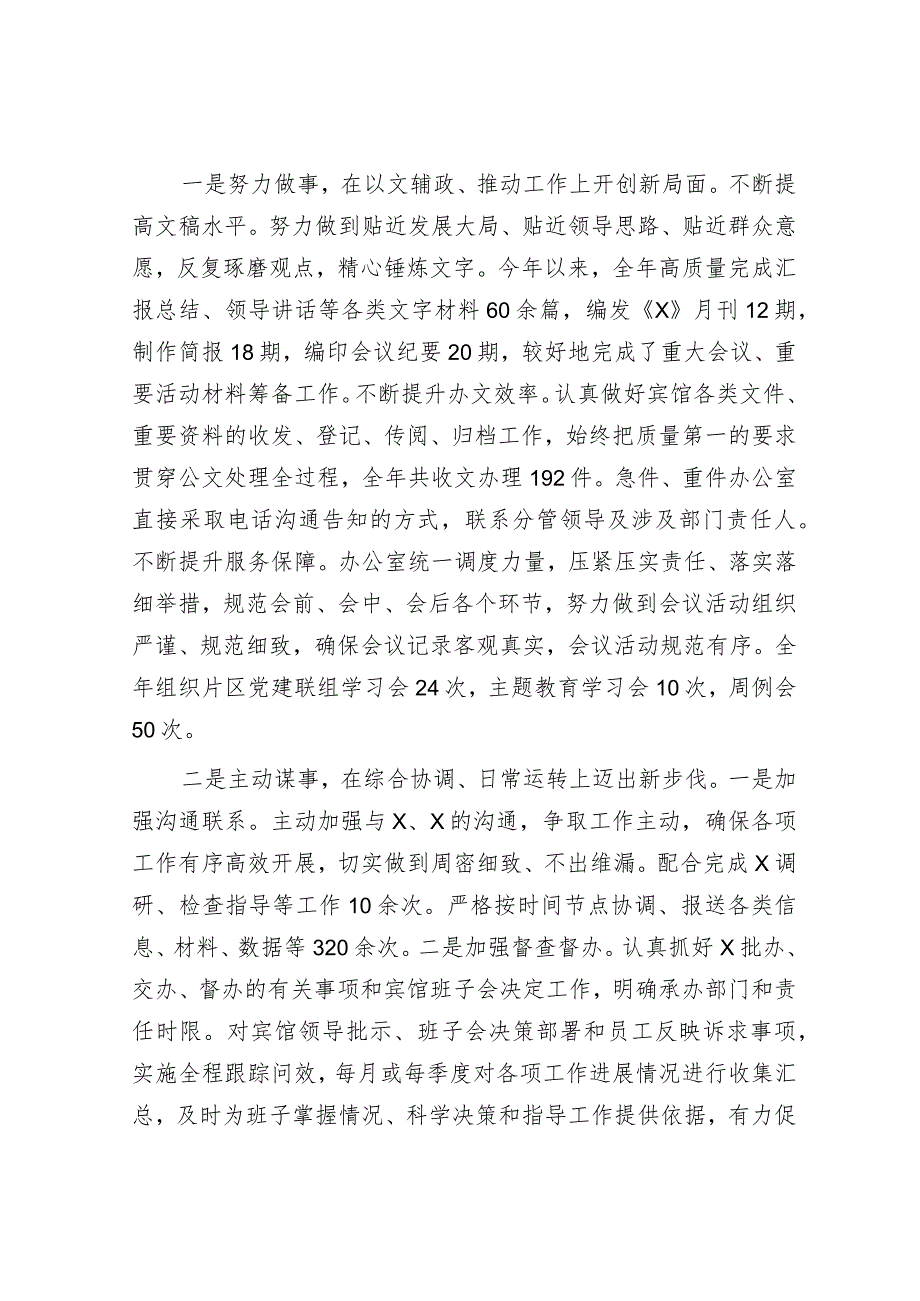 一是努力做事，在以文辅政、推动工作上开创新局面。不断提
高文稿水平。努力做到贴近发展大局、贴近领导思路、贴近群众意
愿，反复琢磨观点，精心锤炼文字。今年以来，全年高质量完成汇
报总结、领导讲话等各类文字材料60余篇，编发《X》月刊12期，
制作简报18期，编印会议纪要20期，较好地完成了重大会议、重
要活动材料筹备工作。不断提升办文效率。认真做好宾馆各类文件、
重要资料的收发、登记、传阅、归档工作，始终把质量第一的要求
贯穿公文处理全过程，全年共收文办理192件。急件、重件办公室
直接采取电话沟通告知的方式，联系分管领导及涉及部门责任人。
不断提升服务保障。办公室统一调度力量，压紧压实责任、落实落
细举措，规范会前、会中、会后各个环节，努力做到会议活动组织
严谨、规范细致，确保会议记录客观真实，会议活动规范有序。全
年组织片区党建联组学习会24次，主题教育学习会10次，周例会
50次。
二是主动谋事，在综合协调、日常运转上迈出新步伐。一是加
强沟通联系。主动加强与X、X的沟通，争取工作主动，确保各项
工作有序高效开展，切实做到周密细致、不出维漏。配合完成X调
研、检查指导等工作10余次。严格按时间节点协调、报送各类信
息、材料、数据等320余次。二是加强督查督办。认真抓好X批办、
交办、督办的有关事项和宾馆班子会决定工作，明确承办部门和责
任时限。对宾馆领导批示、班子会决策部署和员工反映诉求事项，
实施全程跟踪问效，每月或每季度对各项工作进展情况进行收集汇
总，及时为班子掌握情况、科学决策和指导工作提供依据，有力促